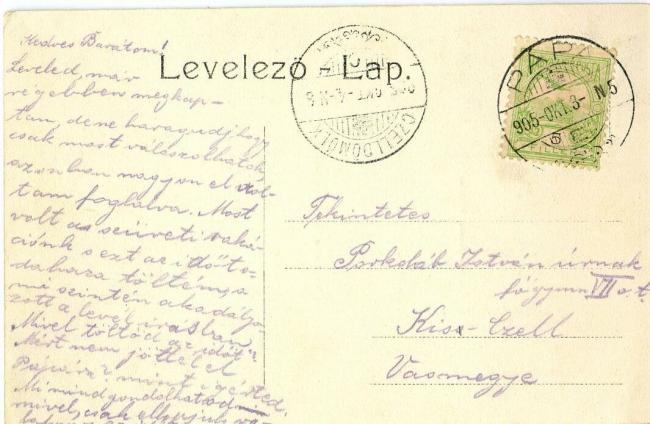 Kedves Barátom!
Leveled, már
régebben megkap-
tam, de ne haragudj hogy
csak most válaszolhatok,
azonban nagyon el vol-
tam foglalva. Most
volt a szüreti vaká-
ciónk s ezt az időt o-
dahaza töltem, a
mi szintén akadályo-
zott a levél írásban.
Mivel töltöd az időt?
Mért nem jöttél el
Pápára? mint igérted.
Mi mind gondolhatod
mivel, csak
Levelező Lap.
CZELLDÖMÖLK
905 OKT. 4. N 6
PÁPA
905-OKT. 3- N 5
Tekintetes
István úrnak
főgymn VII o. t.
Kis-Czell
Vasmegye